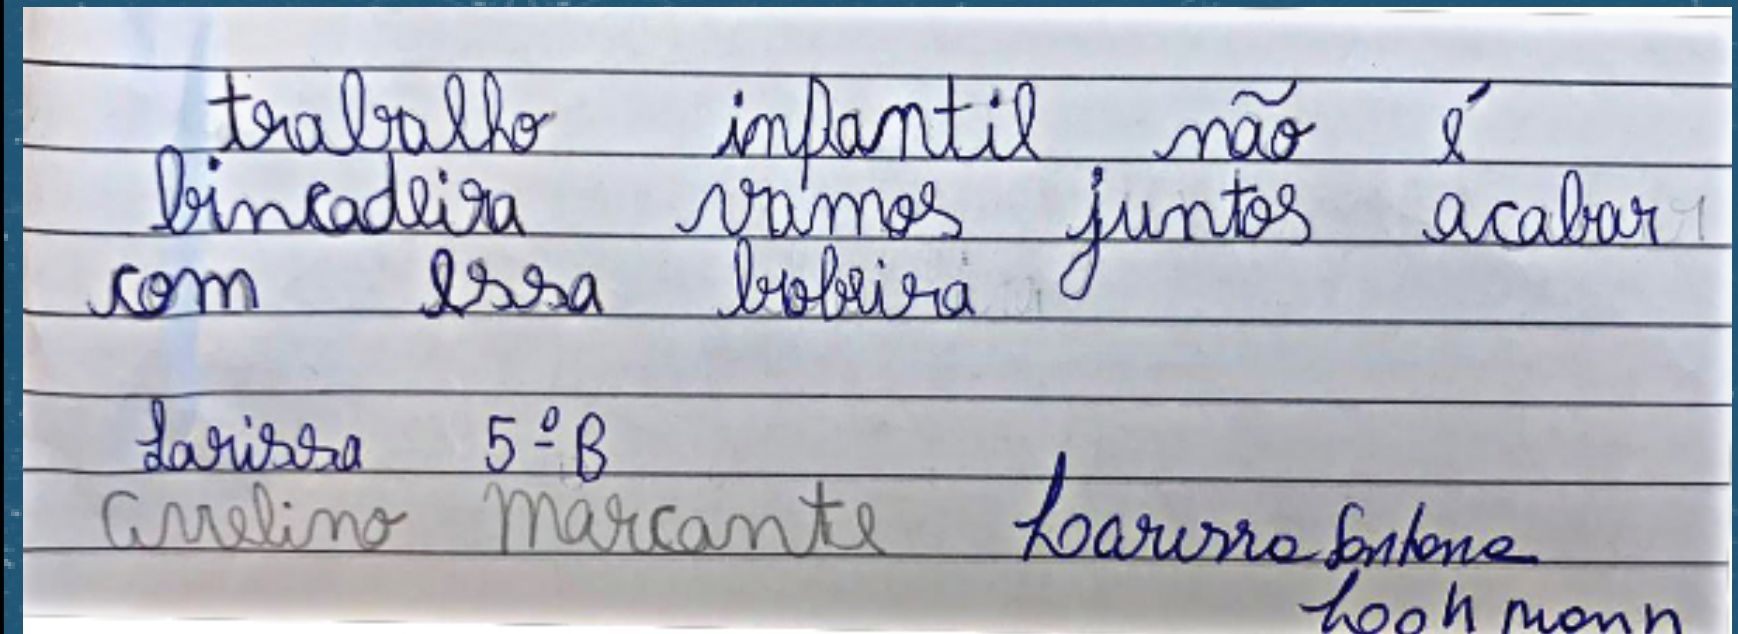 trabalho infantil não é
bincadeira vamos juntos acabar
com essa bobeira
Larissa 5º B
Avelino Marcante Larissa Fontana